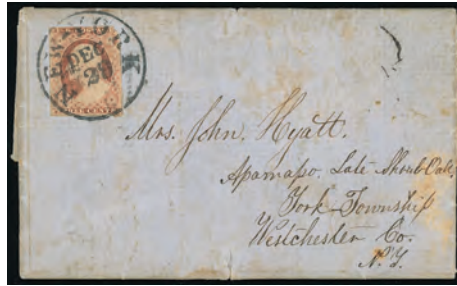 NEW-YORK
DEC
28
Mrs. John Hyatt.
Late Shrub Oak,
York Township
Westchester Co.
N.Y.